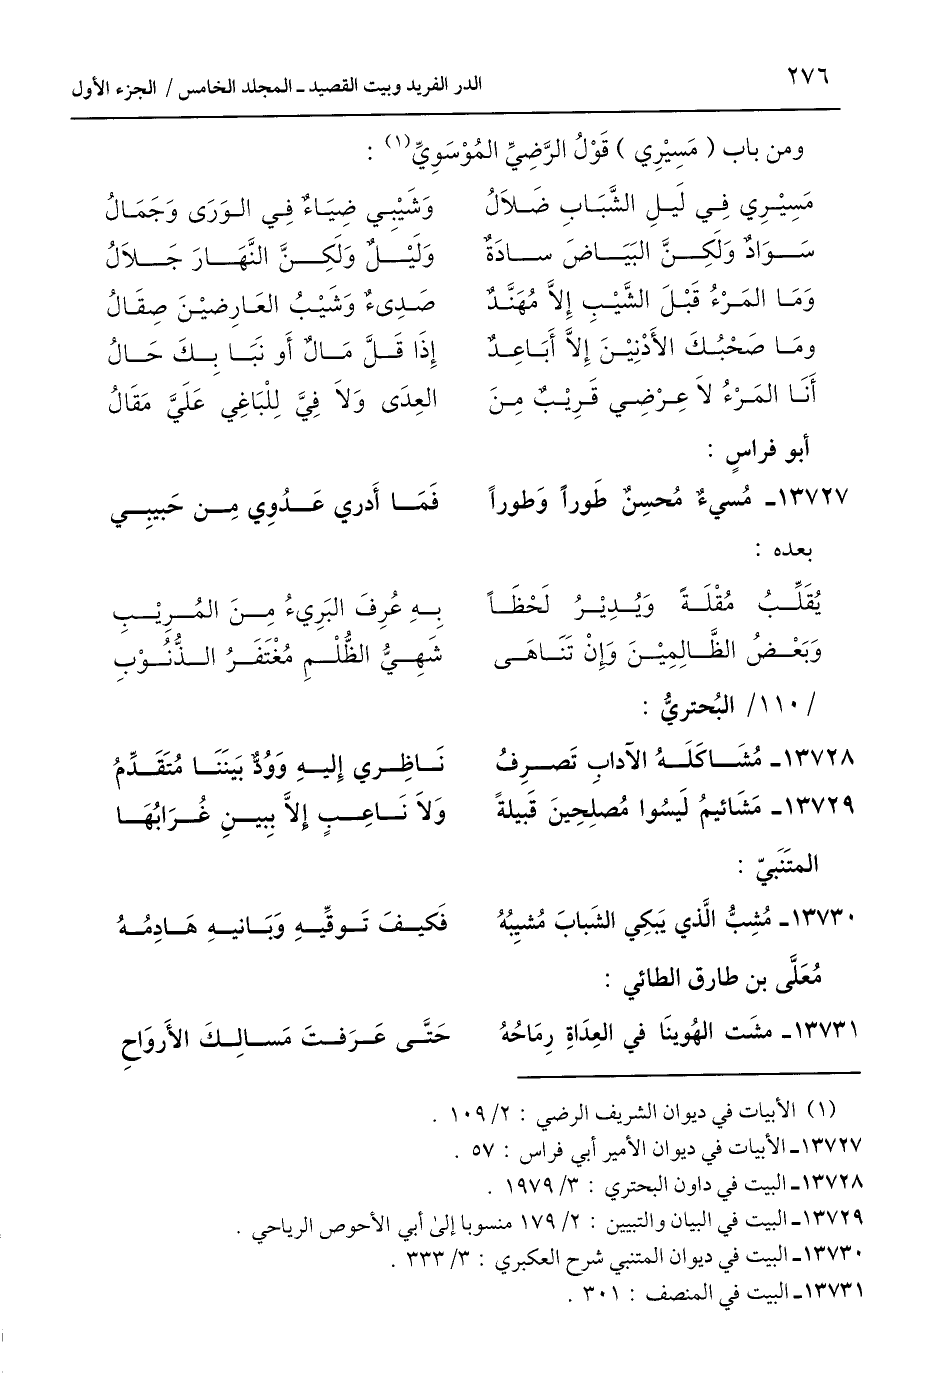 ٢٧٦ الدر الفريد وبيت القصيد ـ المجلد الخامس / الجزء الأول
ومن باب ( مَسِيْرِي ) قَوْلُ الرَّضِيِّ المُوْسَوِيِّ(١) :
مَسِيْرِي فِي لَيلِ الشَّبَابِ ضَلاَلُ وَشَيْبِي ضِيَاءٌ فِي الوَرَى وَجَمَالُ
سَوَادٌ وَلَكِنَّ البَيَاضَ سَادَةٌ وَلَيْلٌ وَلَكِنَّ النَّهَارَ جَلاَلُ
وَمَا المَرْءُ قَبْلَ الشَّيْبِ إِلاَّ مُهَنَّدٌ صَدِيءٌ وَشَيْبُ العَارِضيْنَ صِقَالُ
ومَا صَحْبُكَ الأَدْنِيْنَ إِلاَّ أَبَاعِدٌ إِذَا قَلَّ مَالٌ أَو نَبَا بِكَ حَالُ
أَنَا المَرْءُ لاَ عِرْضِي قَرِيْبٌ مِنَ العِدَى وَلاَ فِيَّ لِلْبَاغِي عَلَيَّ مَقَالُ
أبو فراسٍ :
١٣٧٢٧ـ مُسيءٌ مُحسِنٌ طَوراً وَطوراً فَمَا أَدري عَدُوِي مِن حَبِيبِي
بعده :
يُقَلِّبُ مُقْلَةً وَيُدِيْرُ لَحْظَاً بِهِ عُرِفَ البَرِيءُ مِنَ المُرِيْبِ
وَبَعْضُ الظَّالِمِيْنَ وَإِنْ تَنَاهَى شَهِيُّ الظُّلْمِ مُغْتَفَرُ الذُّنُوْبِ
/ ١١٠/ البُحتريُّ :
١٣٧٢٨ـ مُشَاكَلَهُ الآدابِ تَصرِفُ نَاظِري إِليهِ وَوُدٌّ بَينَنَا مُتَقَدِّمُ
١٣٧٢٩ـ مَشَائيمُ لَيسُوا مُصلِحِينَ قَبيلةً وَلاَ نَاعِبٍ إِلاَّ بِبينِ غُرَابُهَا
المتَنَبيّ :
١٣٧٣٠ـ مُشِبُّ الَّذي يَبكِي الشَبابَ مُشيِبُهُ فَكيفَ تَوقِّيهِ وَبَانيهِ هَادِمُهُ
مُعَلَّى بن طارق الطائي :
١٣٧٣١ـ مشَت الهُوينَا في العِدَاةِ رِمَاحُهُ حَتَّى عَرَفتَ مَسالِكَ الأَروَاحِ
(١) الأبيات في ديوان الشريف الرضي : ٢/ ١٠٩ .
١٣٧٢٧ـ الأبيات في ديوان الأمير أبي فراس : ٥٧ .
١٣٧٢٨ـ البيت في داون البحتري : ٣/ ١٩٧٩ .
١٣٧٢٩ـ البيت في البيان والتبيين : ٢/ ١٧٩ منسوبا إلىٰ أبي الأحوص الرياحي .
١٣٧٣٠ـ البيت في ديوان المتنبي شرح العكبري : ٣/ ٣٣٣ .
١٣٧٣١ـ البيت في المنصف : ٣٠١ .